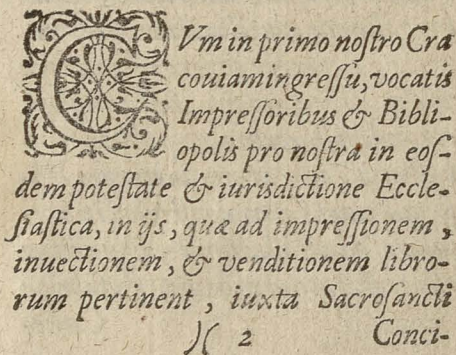 CVm in primo noſtro Cra
couiam ingreſſu, vocatis
Impreſſoribus & Bibli-
opolis pro noſtra in eoſ-
dem poteſtate & iurisdictione Eccle-
ſiaſtica, in ijs, quæ ad impreſſionem,
inuectionem, & venditionem libro-
rum pertinent, iuxta Sacroſancti
)( 2 Conci-